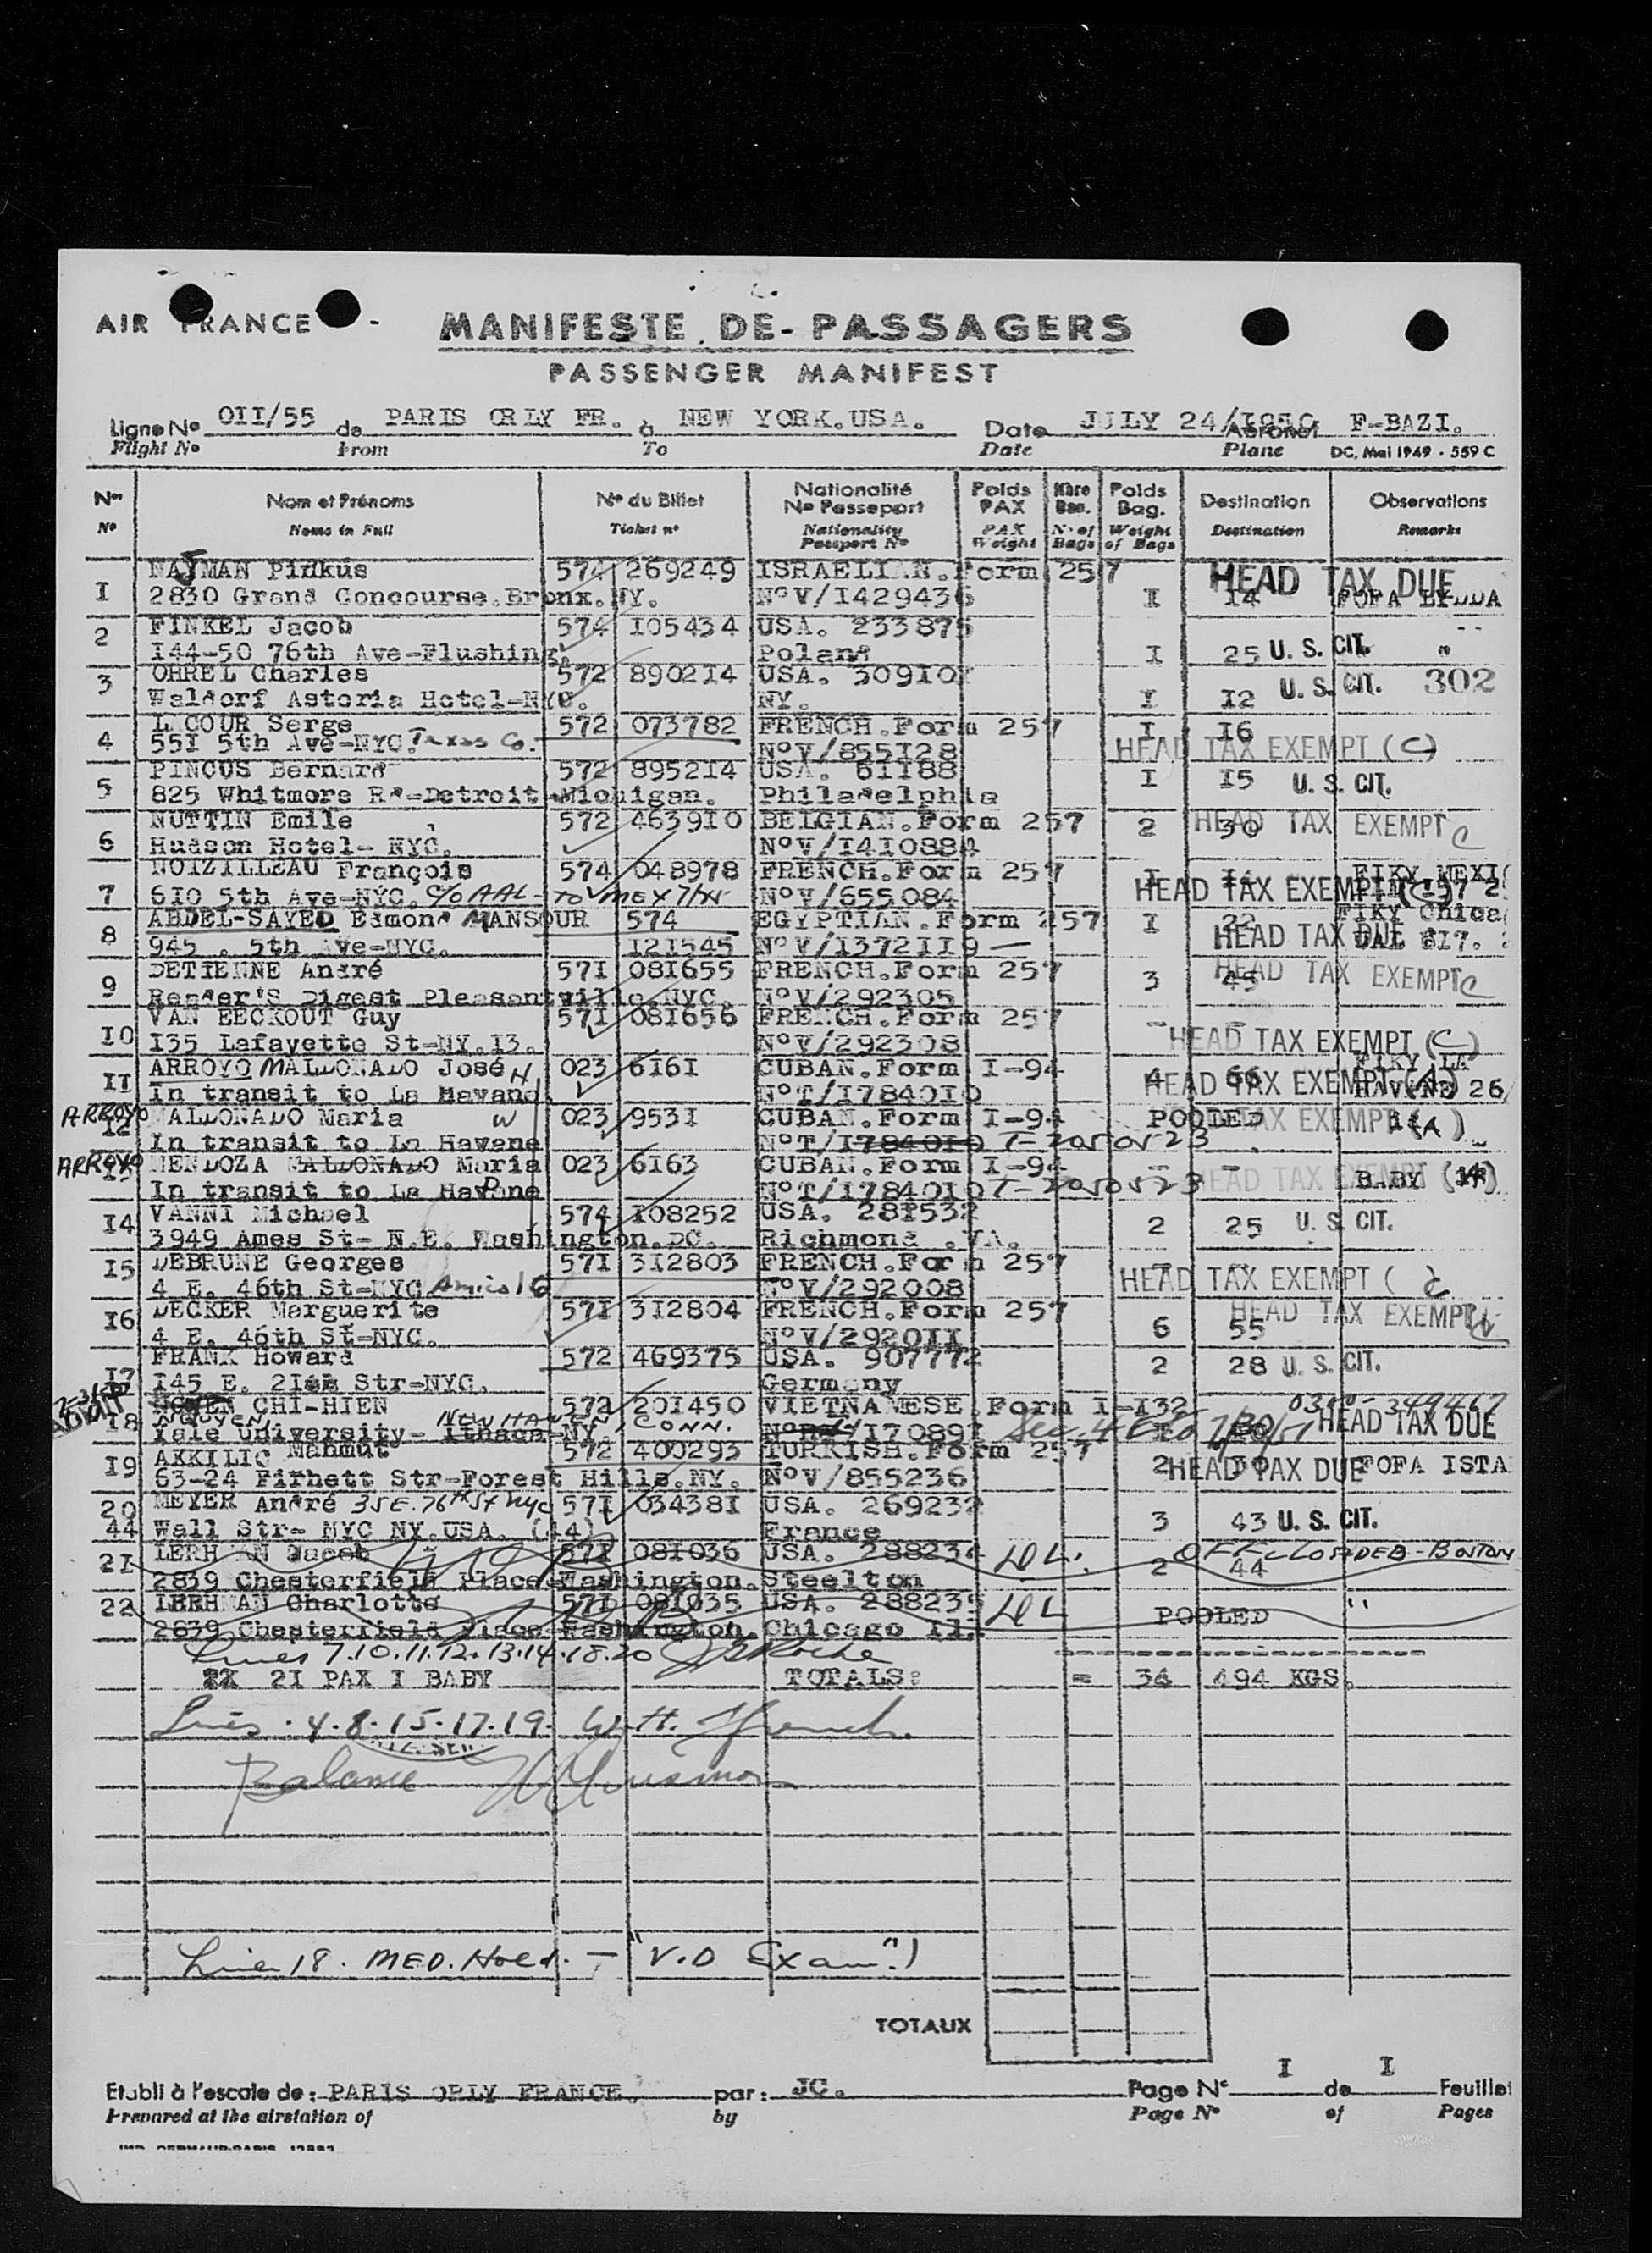 AIR FRANCE -
MANIFESTE DE PASSAGERS
PASSENGER MANIFEST
Ligne No OII/55 de PARIS ORLY FR. à NEW YORK.USA. Date JULY 24/I950 Aéronef F-BAZI.
Flight No From To Date Plane DC, Mai 1949 - 559 C
Nos Nom et Prénoms No du Billet Nationalité No Passeport Poids PAX Nbre Bag. Poids Bag. Destination Observations
No Names in Full Ticket no Nationality Passport No PAX Weight No of Bags Weight of Bags Destination Remarks
NAJMAN Pinkus 574 269249 ISRAELIAN.Form 257 HEAD TAX DUE
I 2830 Grand Concourse.Bronx.NY. NoV/I429436 I I4 FOFA LYDDA
2 FINKEL Jacob 574 I05434 USA. 233875
I44-50 76th Ave-Flushing. Poland I 25 U. S. CIT. "
3 OHREL Charles 572 890214 USA. 30910
Waldorf Astoria Hotel-NYC. NY. I I2 U. S. CIT. 302
4 LACOUR Serge 572 073782 FRENCH.Form 257 I I6
55I 5th Ave-NYC. Texas Co. NoV/855I28 HEAD TAX EXEMPT (C)
5 PINCUS Bernard 572 895214 USA. 61188 I I5 U. S. CIT.
825 Whitmore Rd-Detroit-Michigan. Philadelphia
6 NUTTIN Emile 572 463910 BELGIAN.Form 257 2 30 HEAD TAX EXEMPT C
Hudson Hotel- NYC. NoV/I410884
7 NOIZILLEAU François 574 048978 FRENCH.Form 257 I I4 FIKY MEXI
6I0 5th Ave-NYC. C/o AAL - TO MEX NoV/655084 HEAD TAX EXEMPT (C)
8 ABDEL-SAYED Edmond MANSOUR 574 EGYPTIAN.Form 257 I 22 FIKY Chica
945 . 5th Ave-NYC. I2I545 NoV/I372II9 — HEAD TAX DUE UAL 6I7.
9 DETIENNE André 57I 08I655 FRENCH.Form 257 3 45 HEAD TAX EXEMPT C
Reader'S Digest Pleasantville.NYC. NoV/292305
I0 VAN EECKOUT Guy 57I 08I656 FRENCH.Form 257 - -
I35 Lafayette St-NY.I3. NoV/292308 HEAD TAX EXEMPT (C)
II ARROYO MALDONADO José H 023 6I6I CUBAN.Form I-94 4 66 FIKY LA
In transit to La Havane NoT/I7840I0 HEAD TAX EXEMPT (A) HAVANE 26/
ARROYO
I2 MALDONADO Maria W 023 953I CUBAN.Form I-94 POOLED TAX EXEMPT (A)
In transit to La Havane NoT/I7840I0 T-2050523
ARROYO
I3 MENDOZA MALDONADO Maria 023 6I63 CUBAN.Form I-94 - -
In transit to La Havane NoT/I7840I0 T-2050523 HEAD TAX EXEMPT BABY
I4 VANNI Michael 574 I08252 USA. 28I532 2 25 U. S. CIT.
3949 Ames St- N.E. Washington.DC. Richmond .VA.
I5 DEBRUNE Georges 57I 3I2803 FRENCH.Form 257 - -
4 E. 46th St-NYC NoV/292008 HEAD TAX EXEMPT ( C
I6 DECKER Marguerite 57I 3I2804 FRENCH.Form 257 6 55 HEAD TAX EXEMPT C
4 E. 46th St-NYC. NoV/2920II
I7 FRANK Howard 572 469375 USA. 907772 2 28 U. S. CIT.
I45 E. 2Ist Str-NYC. Germany
ADMIT
I8 NGUYEN CHI-HIEN 572 20I450 VIETNAMESE.Form I-I32 0300-349467
NGUYEN NEW HAVEN, CONN.
Yale University- Ithaca-NY. I70897 HEAD TAX DUE
I9 AKKILIC Mahmut 572 400293 TURKISH.Form 257
63-24 Firhett Str-Forest Hills.NY. NoV/855236 2 30 HEAD TAX DUE FOFA ISTA
20 MEYER André 35 E. 76th St NYC 57I 03438I USA. 269232
44 Wall Str- NYC NY.USA. (I4) France 3 43 U. S. CIT.
2I LERHMAN Jacob 57I 08I036 USA. 288234 2 44 OFFLOADED - BOSTON
2839 Chesterfield Place-Washington. Steelton
22 LERHMAN Charlotte 57I 08I035 USA. 288235 POOLED "
2839 Chesterfield Place-Washington. Chicago Ill
Lines 7.10.11.12.13.14.18.20
2I PAX I BABY TOTALS: = 34 494 KGS.
Lines . 4.8.15.17.19.
Balance
Line 18. MED. Hold. — "V.D Exam".
TOTAUX
Etabli à l'escale de : PARIS ORLY FRANCE. par : JC. Page No I de I Feuillet
Prepared at the airstation of by Page No of Pages